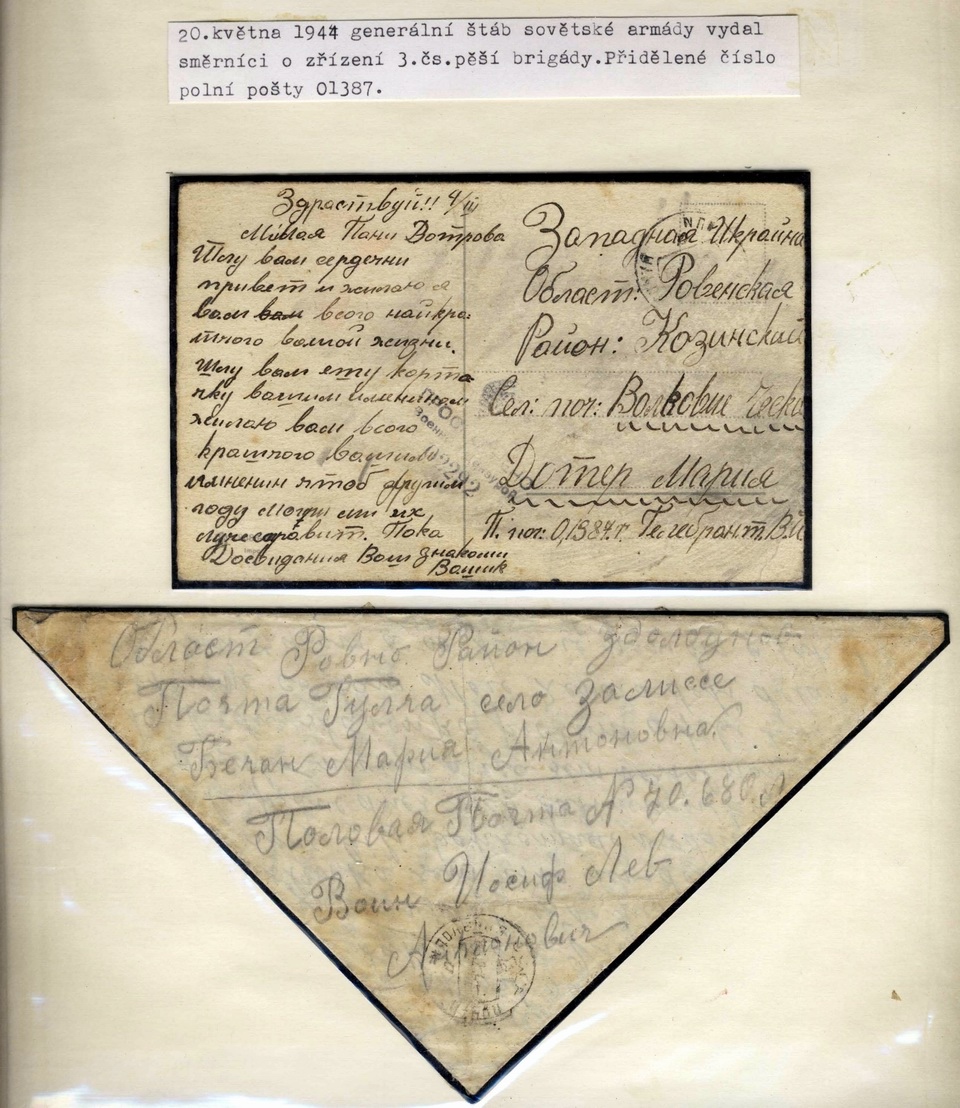 20.května 1944 generální štáb sovětské armády vydal
směrníci o zřízení 3.čs.pěší brigády.Přidělené číslo
polní pošty 01387.
Здраствуй!! 9/III
Милая Пани Дотрова
Шлу вам сердечни
привет и желаю я
вам вам всого найкра-
шчого вашой жизни.
Шлу вам ету карта
чку вашим именинам
желаю вам всого
крашчого
именин чтоб другим
году их
Пока
Досвидания Ваш знакоми
Вашик
Западная Украйна
Област: Ровенская
Район: Козинский
Сел: поч: Чески
Дотер Мария
П. поч: 01384.г Гелебрант. В.И
Област Ровно Район Здолбунов
Почта Гулча село Залиссе
Бечан Мария Антоновна.
Половая Почта № 70.680.
Воин Иосиф Лев
Антонович